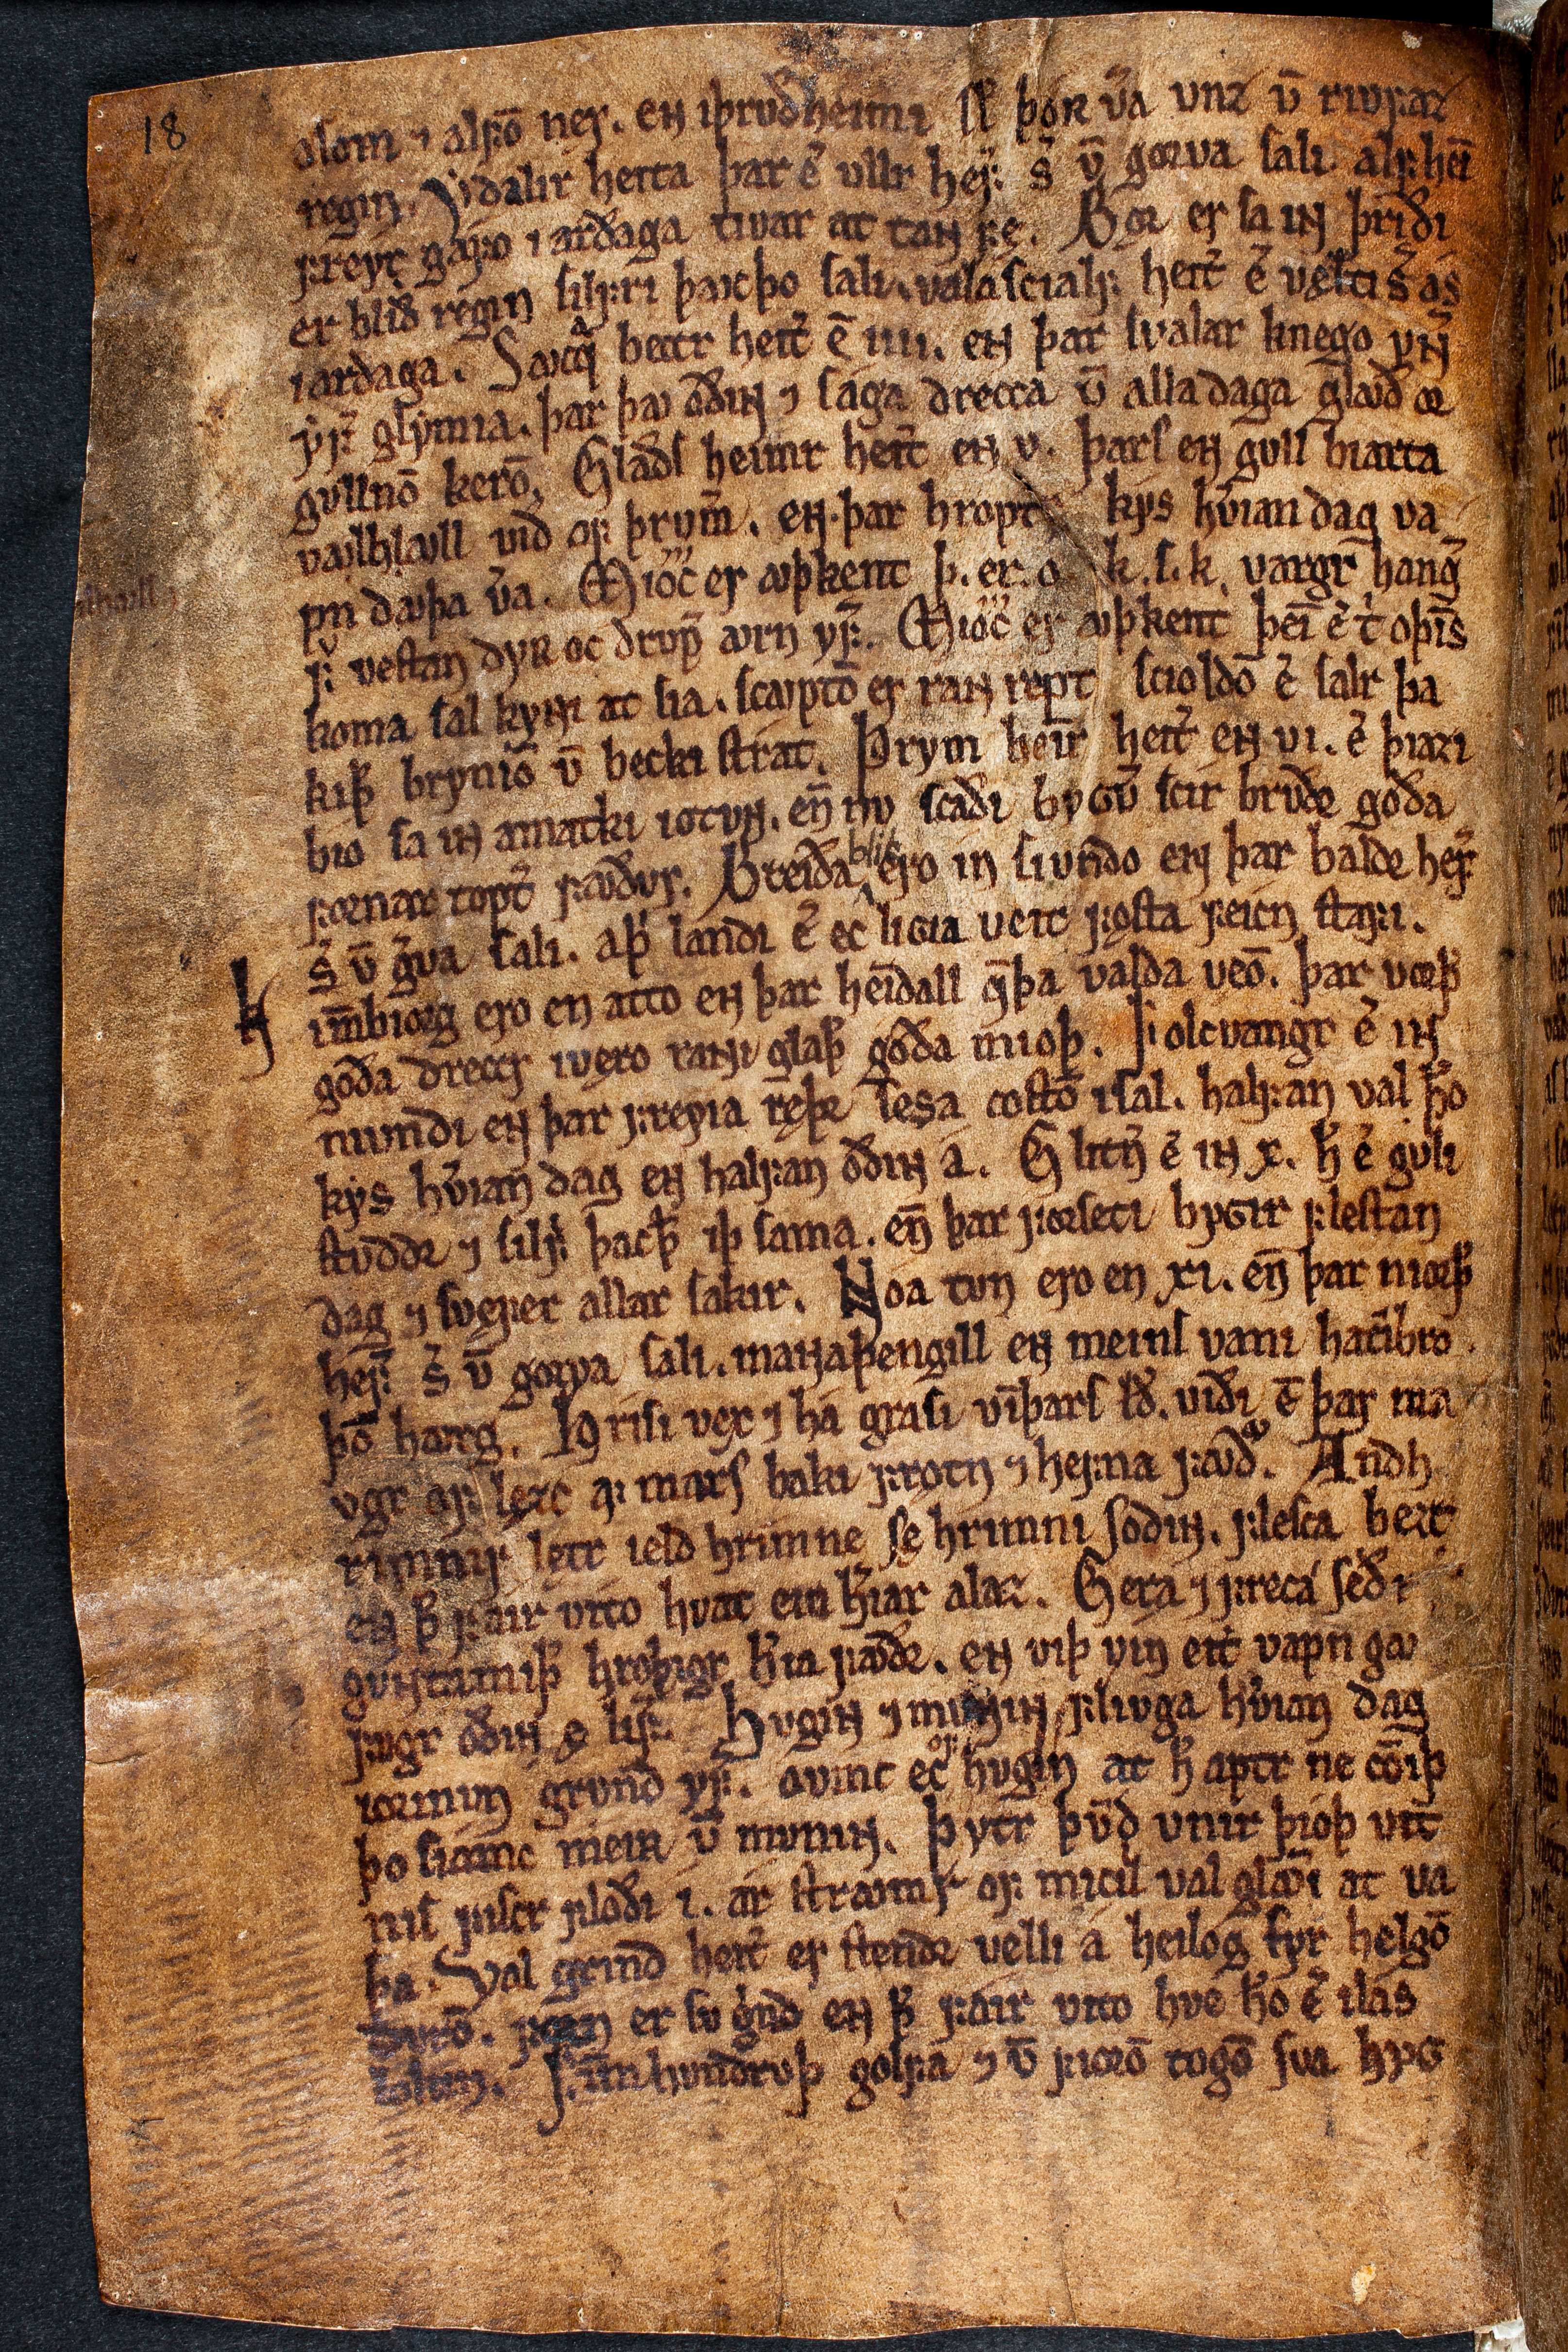 18
olom ⁊ alfō ner. en iþrvðheimi ſl̄ þoʀ v̓a vnz v̄ rivfaz
regin. Ydalir heita þar e᷎ ullr hef᷎ s᷎ v̄ gorva ſali. alfheī
freyr gafo i ardaga tivar at tanfę. Bǫr er ſa iɴ þriði
er blið regin ſilfri þꜹcþo ſali. valaſcialf heit᷎ e᷎ vęlti s᷎ ás
i ardaga. Sꜹcqᷓ beccr heit᷎ ē iiii. en þar ſvalar knego vɴ̄
yf᷎ glymia. þar þꜹ oðiɴ ⁊ ſaga drecca v̄ alla daga glꜹð ór
gvllnō kerō. Glaðſ heimr heit᷎ en v. þarſ en gvll biarta
vꜹlhꜹll við of þrvm᷎. en þar hropt kys hv̓ian dag va
pn dꜹþa v̓a. Mioc er ꜹþkent þ. er. o k. ſ. k. vargr hang᷎
f᷎ veſtan dyʀ oc drvp᷎ ꜹrn yf᷎. Mioc er ꜹþkent þeī e᷎ t᷎ oþīs
koma ſal kyɴi at ſia. ſcꜹptō er raɴ rept ſcioldō e᷎ ſalr þa
kiþ᷎ brynio v̄ becki ſtrat. Þrym heīr heit᷎ en vi. e᷎ þiazi
bio ſa iɴ amatki iotvɴ. en̄ nv ſcaði bygv᷎ ſcir brvðr goða
fornar topt᷎ fꜹðvr. Breiða blik ero in ſivndo en þar baldr hef᷎
s᷎ v̄ g᷎va ſali. aþ᷎ landi e᷎ ec ligia veit fǫſta feicn ſtafi.
h im̄biorg ero en atto en þar heīdall qᷓþa valda veō. þar vorþ᷎
goða dreccr i vęro raɴi glaþ᷎ goða mioþ. Folcvangr e᷎ iɴ
nivndi en þar freyia ręþr ſeſſa coſtō i ſal. halfan val h᷎o
kys hv̓ian dag en halfan oðiɴ á. Glitn᷎ e᷎ iɴ x. h᷎ e᷎ gvli
ſtvddr ⁊ ſilf᷎ þacþ᷎ iþ ſama. en̄ þar forſeti bygir fleſtan
dag ⁊ ſvęfer allar ſakir. Nóa tvn ero en xi. en̄ þar niorþ᷎
hef᷎ s᷎ v̄ gorva ſali. maɴa þengill en meinſ vani hatībro
þō hꜹrg. Hriſi vex ⁊ há graſi viþarſ lð᷎. viði ē þar mꜹ
vgr of lęzc af marſ baki frocn ⁊ hefna fꜹð᷎. Andh
rimnir lętr i eld hrimne ſę hrimni ſodiɴ. fleſca bezt
en þ᷎ fáir vito hvat ein h᷎iar alaz. Gera ⁊ freca ſeð᷎ r
gvɴtamiþ᷎ hroþigr h᷎ia fꜹðr. en viþ vin eit᷎ vapn gꜹ
fvgr oðiɴ ę lif᷎. Hvgiɴ ⁊ mvniɴ flivga hv̓ian dag
iormvn grvnd yf᷎. ovmc ec of hvgin at h᷎ aptr ne cōiþ
þo ſiamc meiʀ v̄ mvniɴ. Þytr þv̄d vnir þioþ vit
nis fiſcr floði i. ár ſtrꜹmr of micill val glꜹm᷎i at va
þa. Val grind heit᷎ er ſtendr velli á heilog fyr helgō
dvrō. forn er ſv g᷎nd en þ᷎ fáir vito hve h᷎o e᷎ i lás
lokin. Fīm hvndrvþ golfa ⁊ v̄ fiorō togō ſva hyg